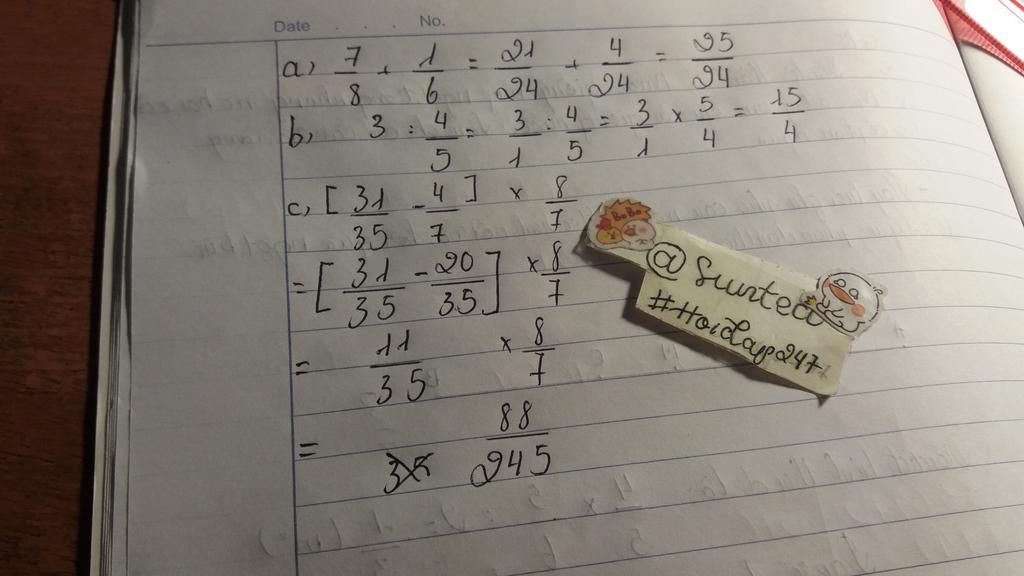 Date . . . . No.
a) 7/8 + 1/6 = 21/24 + 4/24 = 25/24
b) 3 : 4/5 = 3/1 : 4/5 = 3/1 × 5/4 = 15/4
c) [31/35 - 4/7] × 8/7
= [31/35 - 20/35] × 8/7
= 11/35 × 8/7
= 88/245
BoBo
@Suntect
#Hoidap247